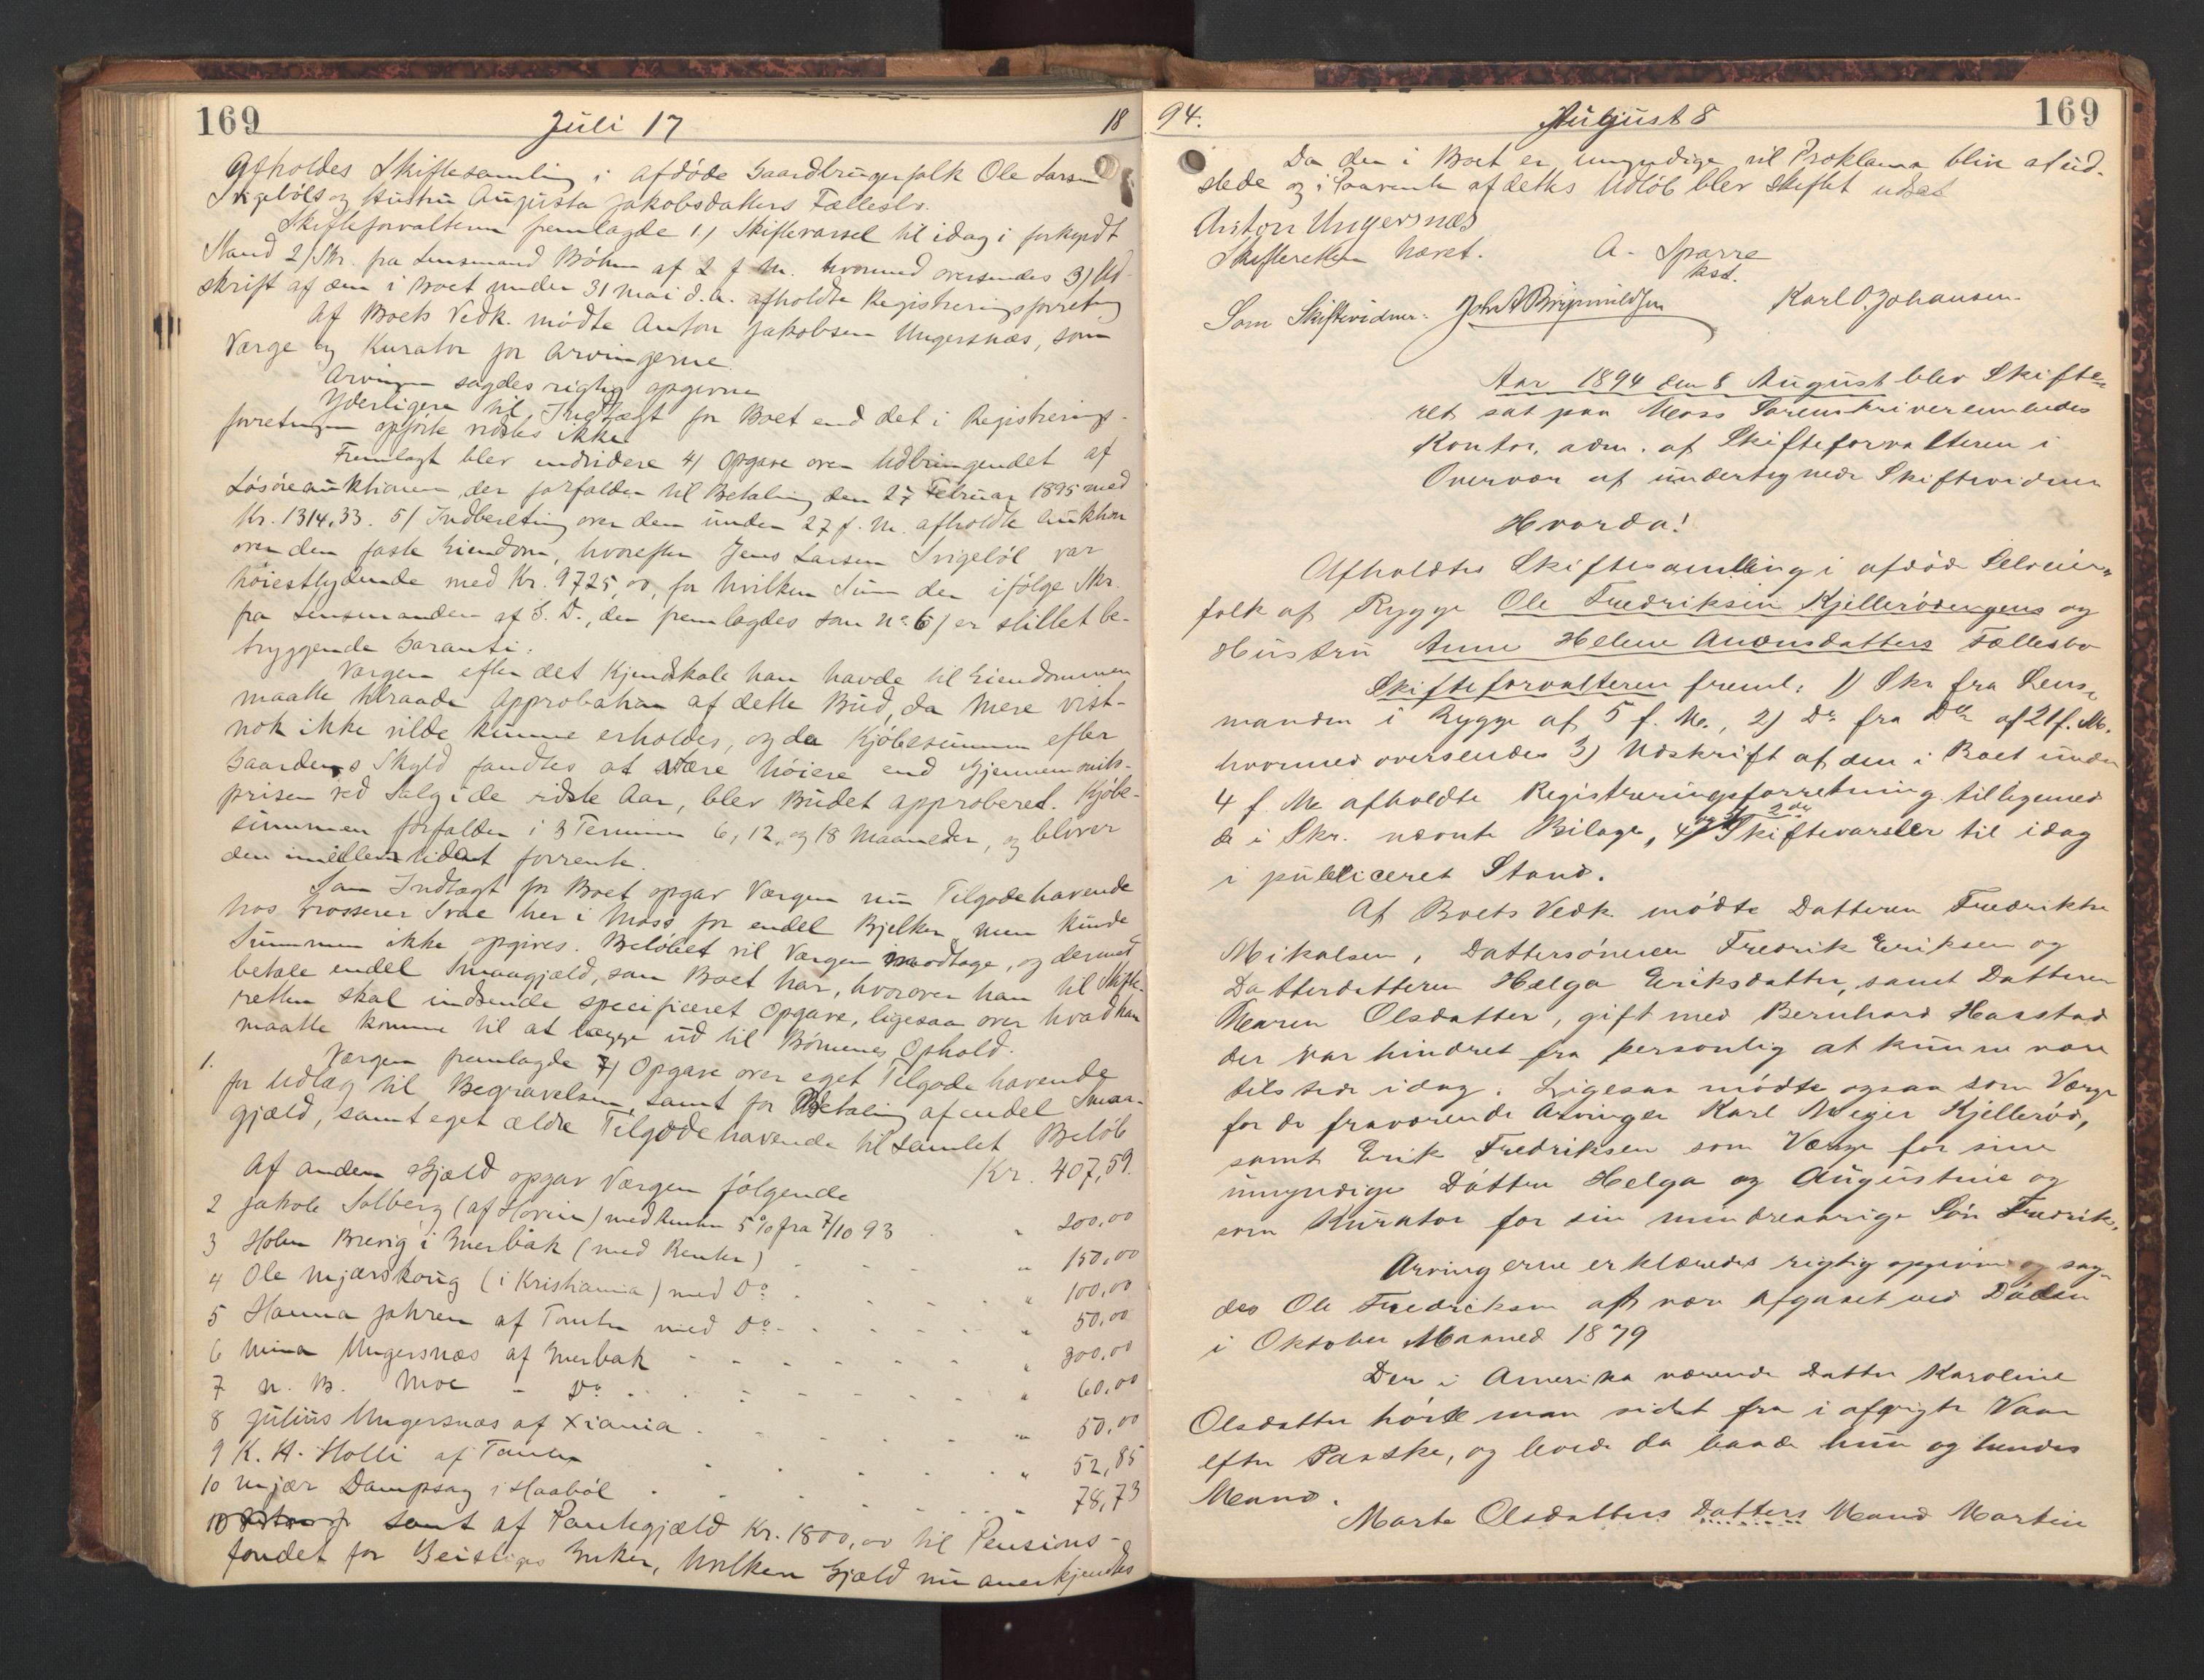 169 Juli 17 18
Afholdes Skiftesamling i afdöde Gaardbrugerfolk Ole Larsen
og Hustru Augusta Jakobsdatters Fællesbo.
Skifteforvalteren fremlagde 1) Skiftevarsel til idag i forkyndt
Stand 2) Skr. fra Lensmand Böhm af 2 f. M. hvormed oversendes 3) Ud-
skrift af den i Boet under 31 Mai d. A. afholdte Registreringsforretng
Af Boets Vedk. mødte Anton Jakobsen Ungersnæs, som
Værge og Kurator for Arvingerne.
Arvingerne sagdes rigtig opgivne
Yderligere til Indtægt for Boet end det i Registrerings-
forretningen opförte vidstes ikke
Fremlagt blev endvidere 4) Opgave over Udbringendet af
Lösöreauktionen, der forfalder til Betaling den 27 Februar 1895 med
Kr. 1314,33. 5) Indberetning over den under 27 f. M. afholdte Auktion
over den faste Eiendom, hvorefter Jens Larsen Svigeböl var
höiestbydende med Kr. 9725,00, for hvilken Sum der ifölge Skr.
fra Lensmanden af S. D., der fremlagdes som No 6) er stillet be-
tryggende Garanti.
Værgen efter det Kjendskab han havde til Eiendommen
maatte tilraade Approbation af dette Bud, da Mere vist-
nok ikke vilde kunne erholdes, og da Kjöbesummen efter
Gaardens Skyld fandtes at være höiere end Gjennemsnits-
prisen ved Salg i de sidste Aar, blev Budet approberet. Kjöbe-
summen forfalder i 3 Terminer 6, 12 og 18 Maaneder, og bliver
den imellemtiden at forrente.
Som Indtægt for Boet opgav Værgen nu Tilgodehavende
hos Grosserer Svae her i Moss for endel Bjelker men kunde
Summen ikke opgives. Belöbet vil Værgen modtage, og dermed
betale endel Smaagjæld, som Boet har, hvorover han til Skifte-
retten skal indsende specificeret Opgave, ligesaa over hvad han
maatte komme til at lægge ud til Börnenes Ophold.
1. Værgen fremlagde 7) Opgave over eget Tilgodehavende
for Udlæg til Begravelsen, samt for Betaling af endel Smaa-
gjæld, samt eget ældre Tilgodehavende til samlet Belöb
Kr. 407,59.
Af anden Gjæld opgav Værgen fölgende
2 Jakob Solberg (af Hovin) med Renter 5% fra 7/10 93 " 200,00
3 Holm Brevig i Enerbak (med Renter) " 150,00
4 Ole Mjærskoug (i Kristiania) med Do " 100,00
5 Hanna Jahren af Tomter med Do " 50,00
6 Mina Ungersnæs af Enerbak " 300,00
7 N. B. Moe - Do " 60,00
8 Julius Ungersnæs af Xiania " 50,00
9 K. H. Holli af Tomter " 52,85
10 Mjær Dampsag i Haaböl " 78,73
samt af Pantegjæld Kr. 1800,00 til Pensions-
fondet for Geistliges Enker, hvilken Gjæld nu anerkjendtes
94. August 8 169
Da der i Boet er umyndige vil Proklama blive at ud-
stede og i Paavente af dettes Udlöb blev Skiftet udsat
Anton Ungersnæs
Skifteretten hævet. A. Sparre
kst.
Som Skiftevidner. Joh. A. Brynildsen Karl O. Johansen.
Aar 1894 den 8 August blev Skifte-
ret sat paa Moss Sorenskriverembedes
Kontor, adm. af Skifteforvalteren i
Overvær af undertegnede Skiftevidner
Hvorda!
Afholdtes Skiftesamling i afdöde Selveier-
folk af Rygge Ole Fredriksen Kjellerödengens og
Hustru Anne Helene Amonsdatters Fællesbo
Skifteforvalteren freml: 1) Skr fra Lens-
manden i Rygge af 5 f. M., 2) Do fra Do af 21 f. M.
hvormed oversendes 3) Udskrift af den i Boet under
4 f. M. afholdte Registreringsforretning tilligemed
de i Skr. nævnte Bilage, 4) og 5) 2de Skiftevarsler til idag
i publiceret Stand.
Af Boets Vedk mödte Datteren Fredrikke
Mikalsen, Dattersönnen Fredrik Eriksen og
Datterdatteren Helga Eriksdatter, samt Datteren
Maren Olsdatter, gift med Bernhard Haastad
der var hindret fra personlig at kunne være
tilstede idag. Ligesaa mödte ogsaa som Værge
for de fraværende Arvinger Karl Meijer Kjelleröd,
samt Erik Fredriksen som Værge for sine
umyndige Döttre Helga og Augustine og
som Kurator for sin mindreaarige Sön Fredrik.
Arvingerne erklæredes rigtig opgivne og sag-
des Ole Fredriksen at være afgaaet ved Döden
i Oktober Maaned 1879
Den i Amerika værende Datter Karoline
Olsdatter hörte man sidst fra i afvigte Vaar
efter Paaske, og levede da baade hun og hendes
Mand.
Marte Olsdatters Datters Mand Martin